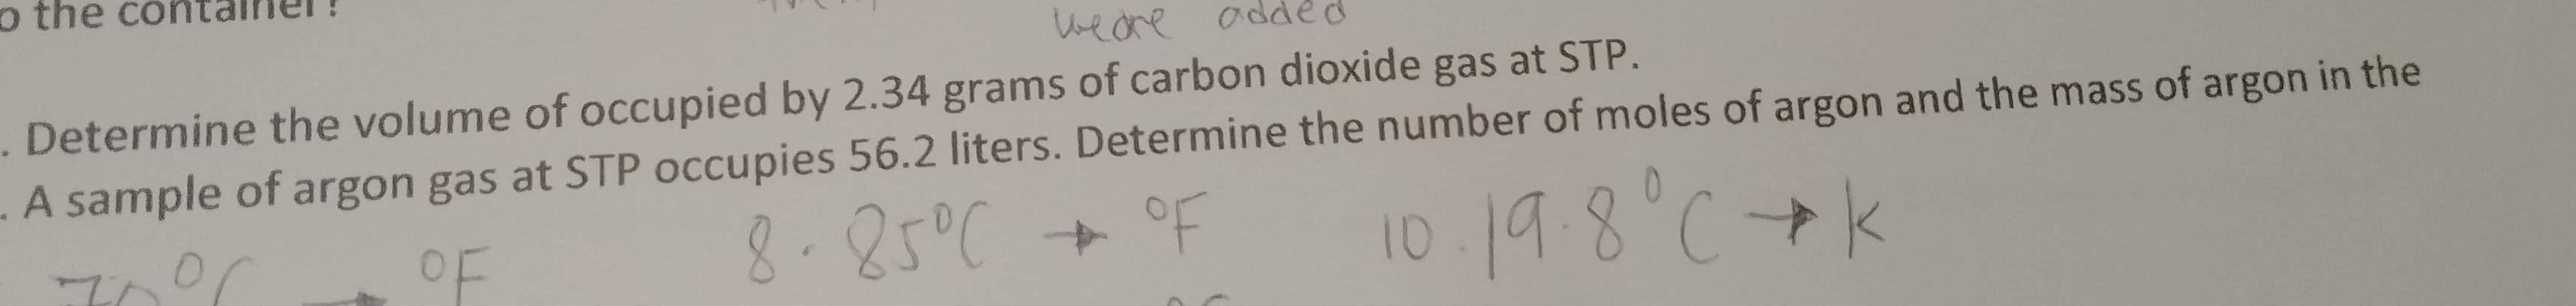 o the container?
we are added
. Determine the volume of occupied by 2.34 grams of carbon dioxide gas at STP.
. A sample of argon gas at STP occupies 56.2 liters. Determine the number of moles of argon and the mass of argon in the
8. 85°C → °F 10. 19.8°C → K
70°C → °F